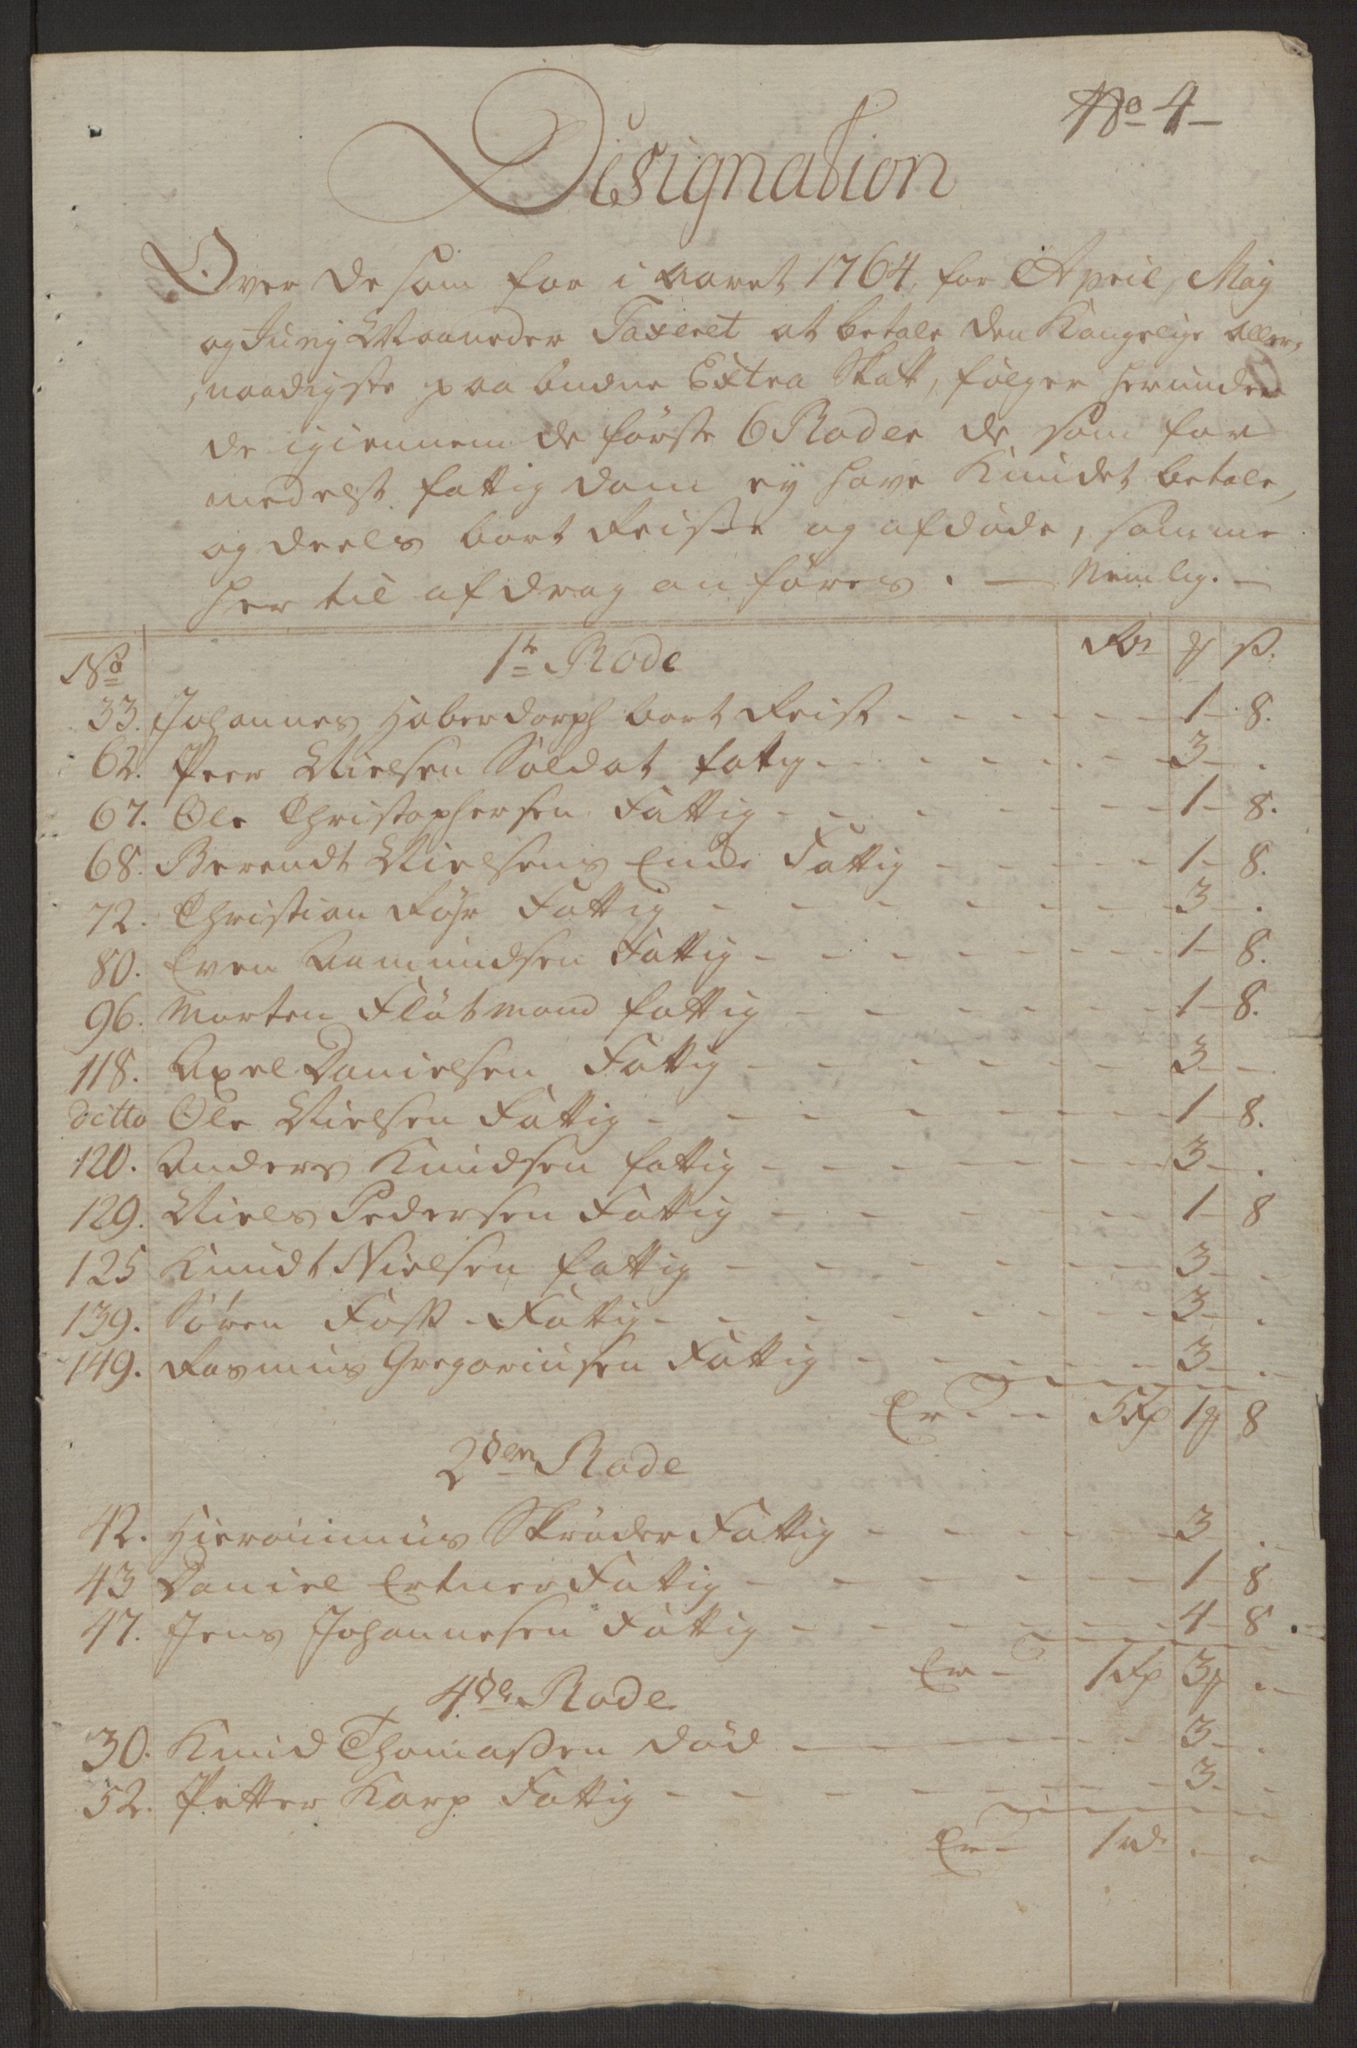 No 4
Designation
Over de som for i aaret 1764, for April, Maij
og Junij Maaneder Taxeret at betale den Kongelige Aller,
,naadigste paabudne Extra Skatt, følger herunder
de igiennem de første 6 Roder de som for
medelst fattigdom ey have Kundet betale,
og deels bort Reiste og afdøde, som me
her til afdrag anføres. — Nemlig. —
No 1te Rode Rdr ß.
33. Johannes Haberdorph bort Reist - 1 - 8.
62. Peer Nielsen Soldat fattig - 3 - .
67. Ole Christophersen Fattig - 1 - 8.
68. Berendt Nielsens Enke Fattig - 1 - 8.
72. Christian Røhr Fattig - 3 - .
80. Even Aamundsen Fattig - 1 - 8.
96. Morten Fløtmand fattig - 1 - 8.
118. Axel Danielsen Fattig - 3 - -
ditto Ole Nielsen Fattig - 1 - 8.
120. Anders Knudsen fattig - 3 - .
129. Niels Pedersen Fattig - 1 - 8
125 Knudt Nielsen fattig - 3 - .
139. Søren Foss - Fattig - 3 - .
149. Rasmus Gregoriusen Fattig - 3 - .
Er - 5 Rd 1 8
2den Rode
42. Hieronimus Skrøder Fattig - 3 .
43 Daniel Ertner Fattig - 1 - 8
47. Jens Johannesen Fattig - 4 - 8.
Er - 1 Rd 3 -
4de Rode
30. Knud Thomassen død - 3 - .
52. Petter Karp Fattig - 3 - -
Er - 1 rd . -